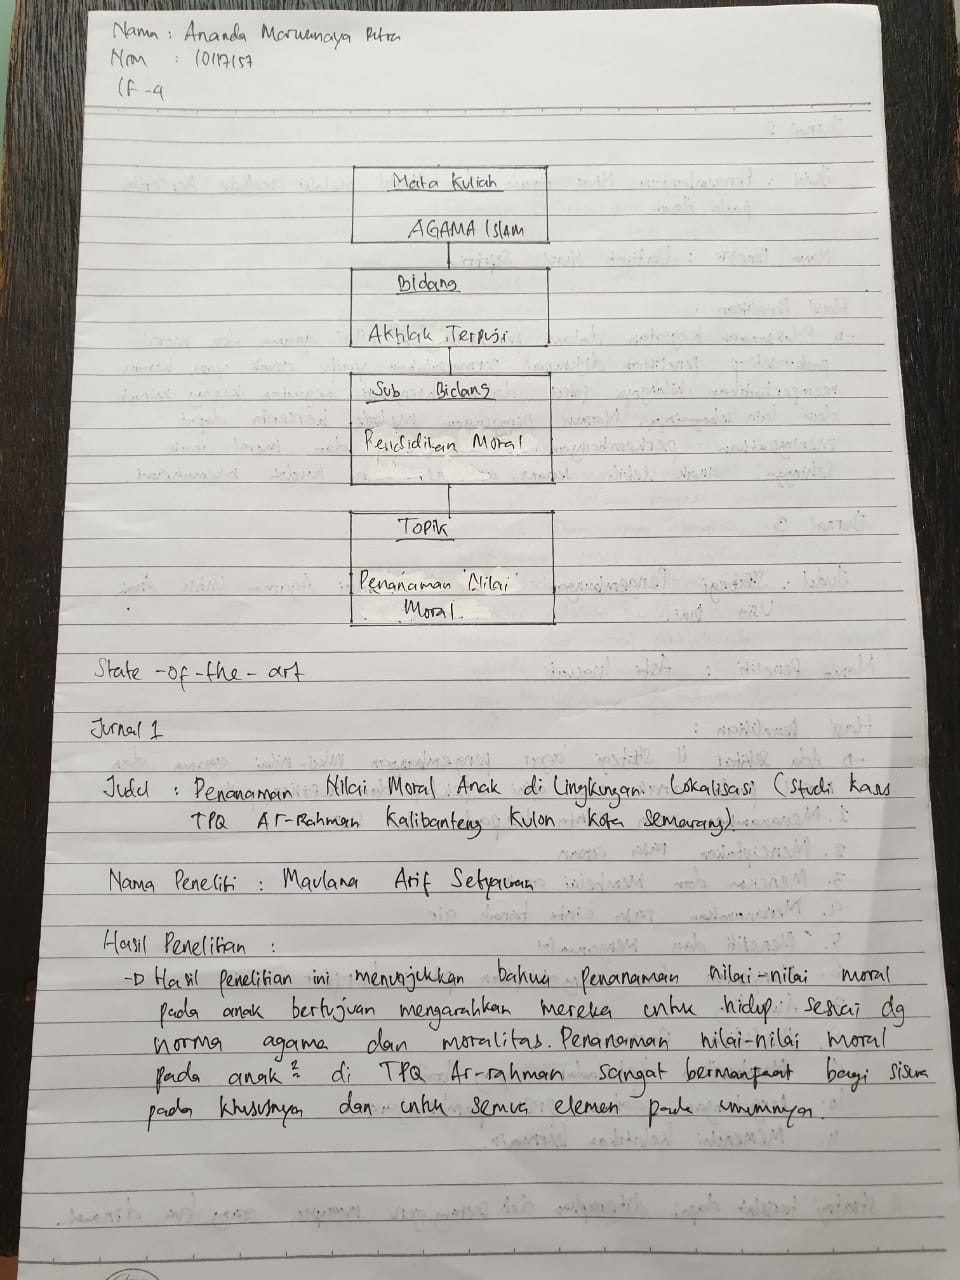 Nama : Ananda Maruanaya Putra
Nim : 10117157
IF-4
Mata Kuliah
AGAMA ISLAM
Bidang
Akhlak Terpuji
Sub Bidang
Pendidikan Moral
Topik
Penanaman Nilai
Moral
State-of-the-art
Jurnal 1
Judul : Penanaman Nilai Moral Anak di Lingkungan Lokalisasi (studi kasus
TPQ Ar-Rahman Kalibanteng Kulon Kota Semarang).
Nama Peneliti : Maulana Arif Setyawan
Hasil Penelitian :
→ Hasil penelitian ini menunjukkan bahwa penanaman nilai-nilai moral
pada anak bertujuan mengarahkan mereka untuk hidup sesuai dg
norma agama dan moralitas. Penanaman nilai-nilai moral
pada anak² di TPQ Ar-rahman sangat bermanfaat bagi siswa
pada khususnya dan untuk semua elemen pada umumnya.